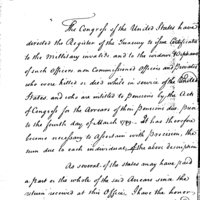 The Congress of the United States have
directed the Register of the Treasury to issue Certificates
to the Military invalids and to the widows & orphans
of such officers non Commissioned Officers and Privates
who were killed or died while in service of the United
States and who are intitled to Pensions by the Acts
of Congress for the Arrears of their Pensions due prior
to the fourth day of March 1789. It has therefore
become necessary to ascertain with precision, the
sum due to each individual of the above description
As several of the states may have paid
a part or the whole of the said Arrears since the
return received at this Office, I have the honor